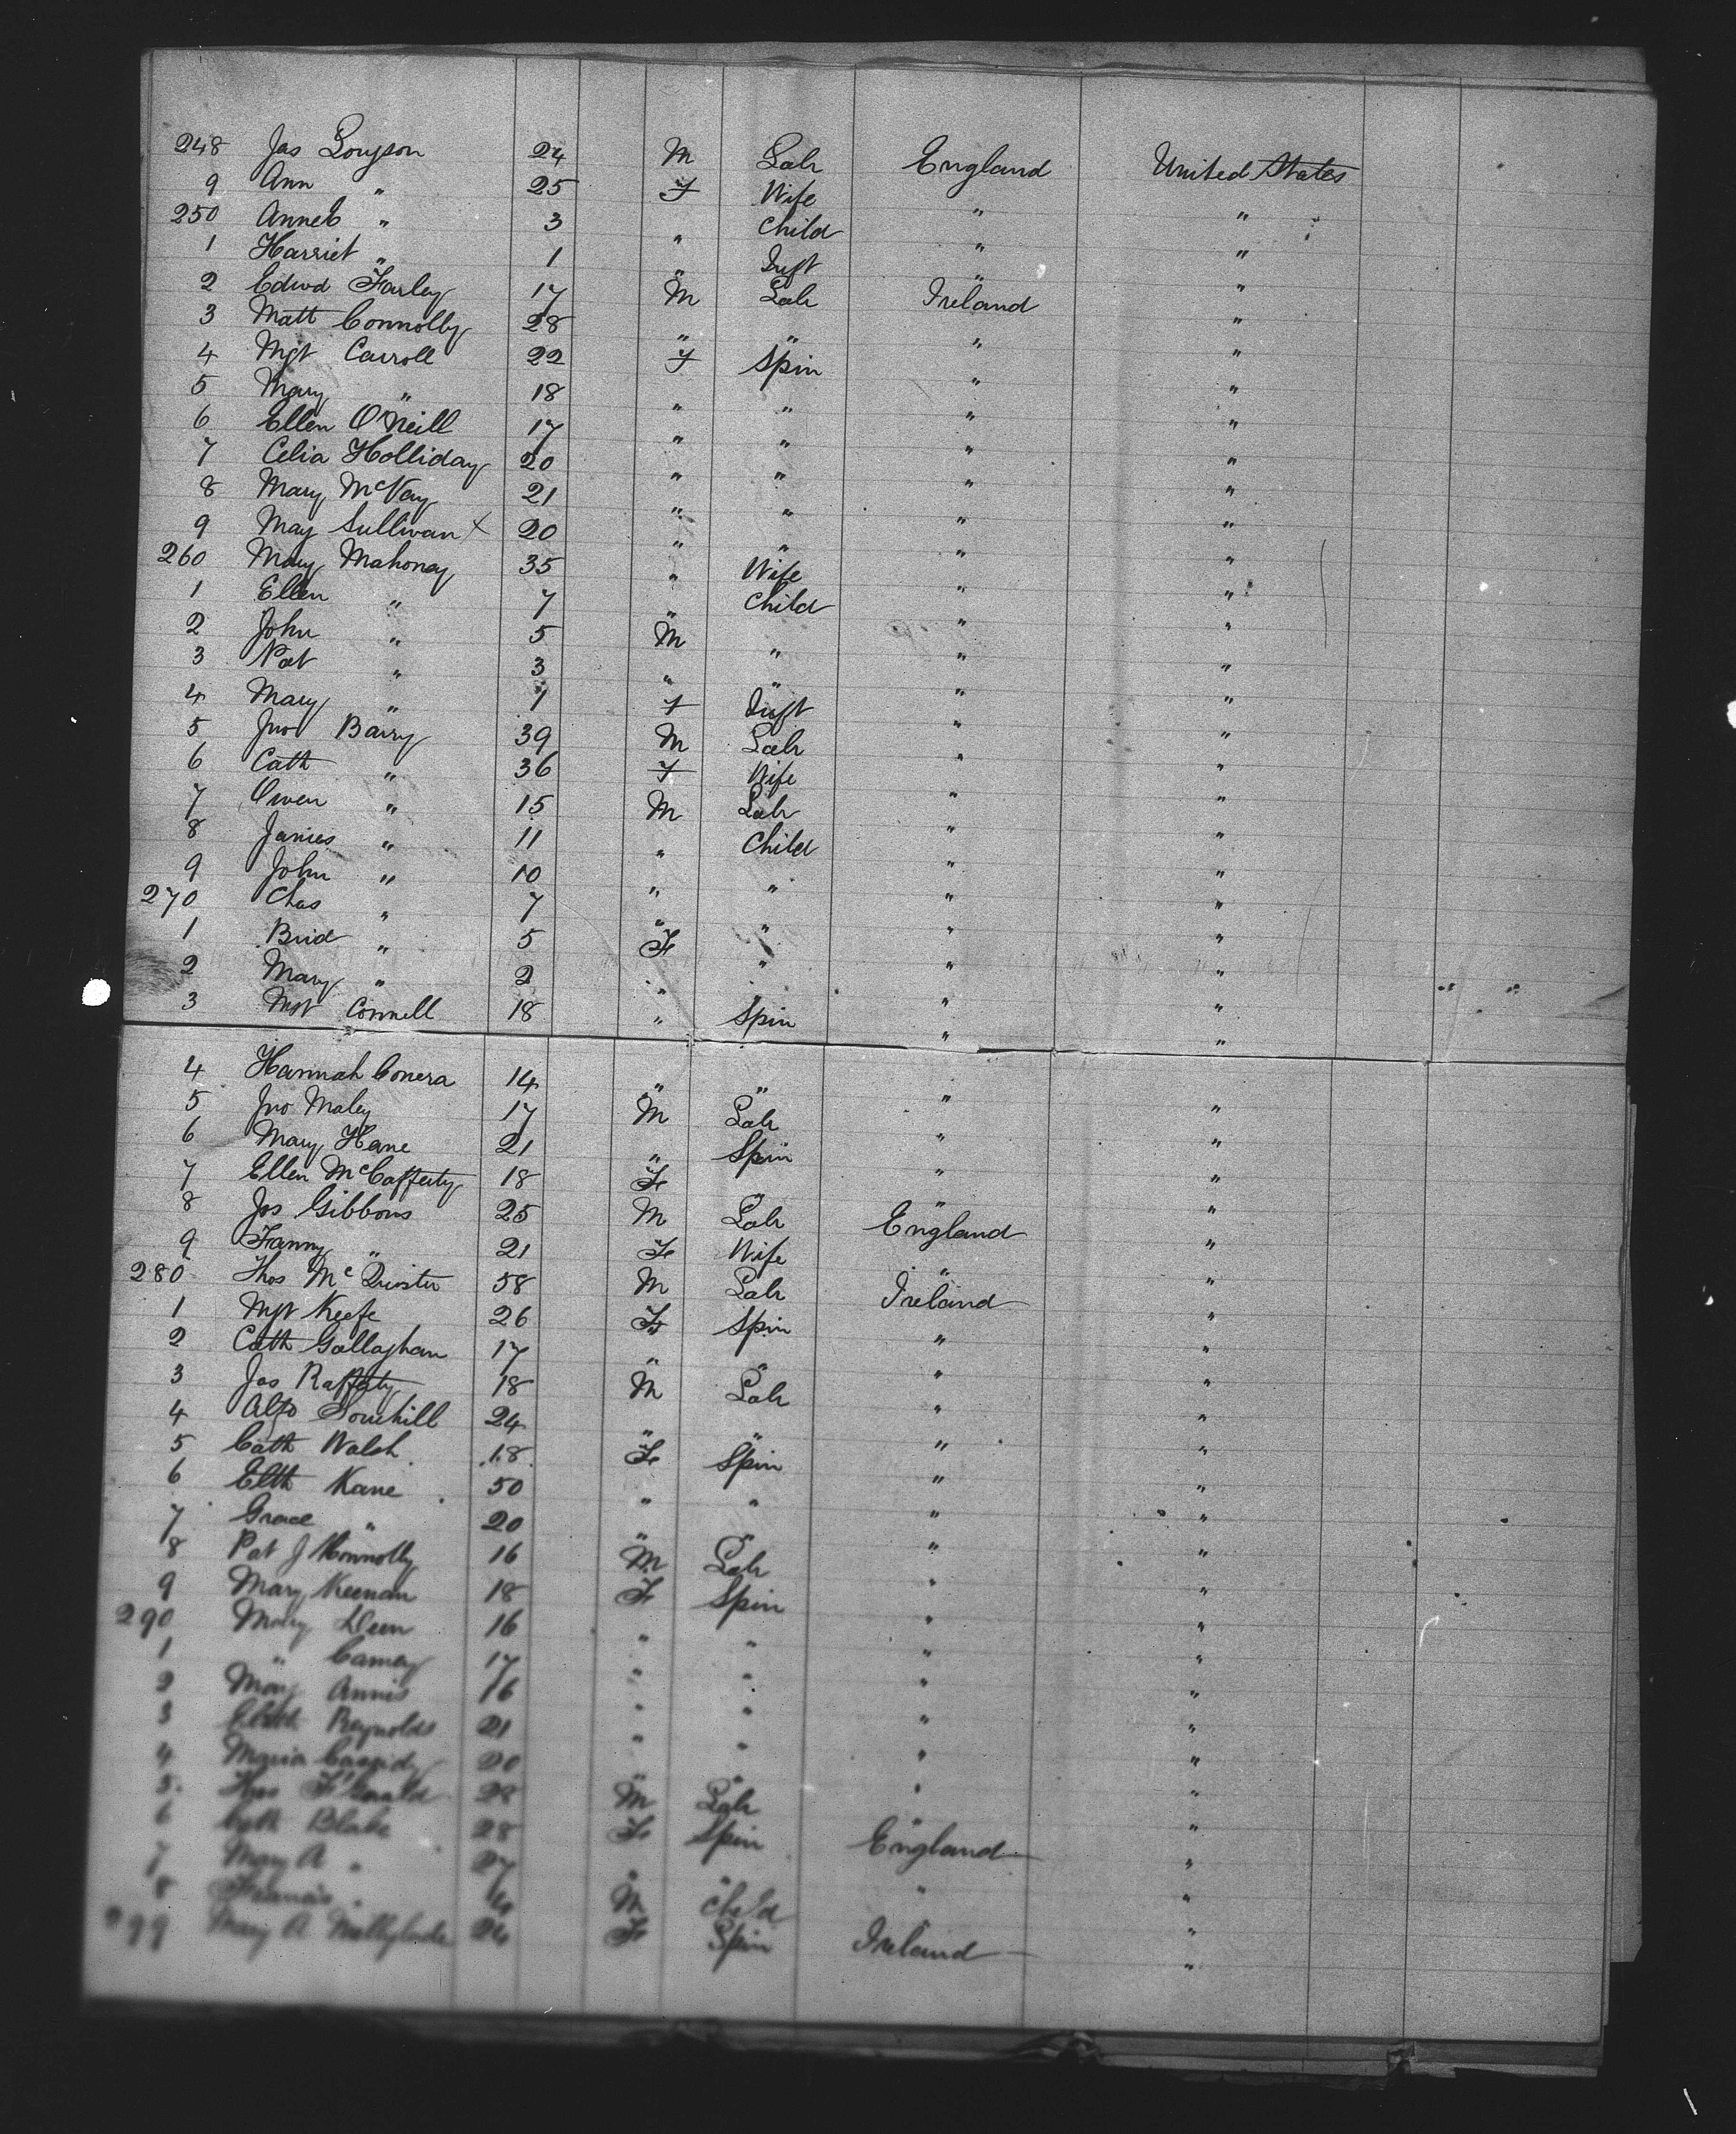 248 Jas Longson 24 M Lab England United States
9 Ann " 25 F Wife " "
250 Annet " 3 " Child " "
1 Harriet " 1 " Inft " "
2 Edwd Farley 17 M Lab Ireland "
3 Matt Connolly 28 " " " "
4 Mgt Carroll 22 F Spin " "
5 Mary " 18 " " " "
6 Ellen O'Neill 17 " " " "
7 Celia Holliday 20 " " " "
8 Mary McVay 21 " " " "
9 May Sullivan X 20 " " " "
260 Mary Mahoney 35 " Wife " "
1 Ellen " 7 " Child " "
2 John " 5 M " " "
3 Pat " 3 " " " "
4 Mary " 1 F Inft " "
5 Jno Barry 39 M Lab " "
6 Cath " 36 F Wife " "
7 Owen " 15 M Lab " "
8 James " 11 " Child " "
9 John " 10 " " " "
270 Chas " 7 " " " "
1 Brid " 5 F " " "
2 Mary " 2 " " " "
3 Mgt Connell 18 " Spin " "
4 Hannah Conera 14 " " " "
5 Jno Maley 17 M Lab " "
6 Mary Hane 21 " Spin " "
7 Ellen McCafferty 18 F " " "
8 Jos Gibbons 25 M Lab England "
9 Fanny " 21 F Wife " "
280 Thos 58 M Lab Ireland "
1 Mgt Keefe 26 F Spin " "
2 Cath Gallaghan 17 " " " "
3 Jas Rafferty 18 M Lab " "
4 Alfd 24 " " " "
5 Cath Walsh 18 F Spin " "
6 Elth Kane 50 " " " "
7 Grace " 20 " " " "
8 Pat J Konnolly 16 M Lab " "
9 Mary Keenan 18 F Spin " "
290 Mary 16 " " " "
1 " 17 " " " "
2 Mary Annis 16 " " " "
3 Reynolds 21 " " " "
4 Maria Cassidy 20 " " " "
5 Thos 28 M Lab " "
6 Cath Blake 28 F Spin England "
7 Mary A " 27 " " " "
8 Francis " 4 M Child " "
299 Mary A F Spin Ireland "